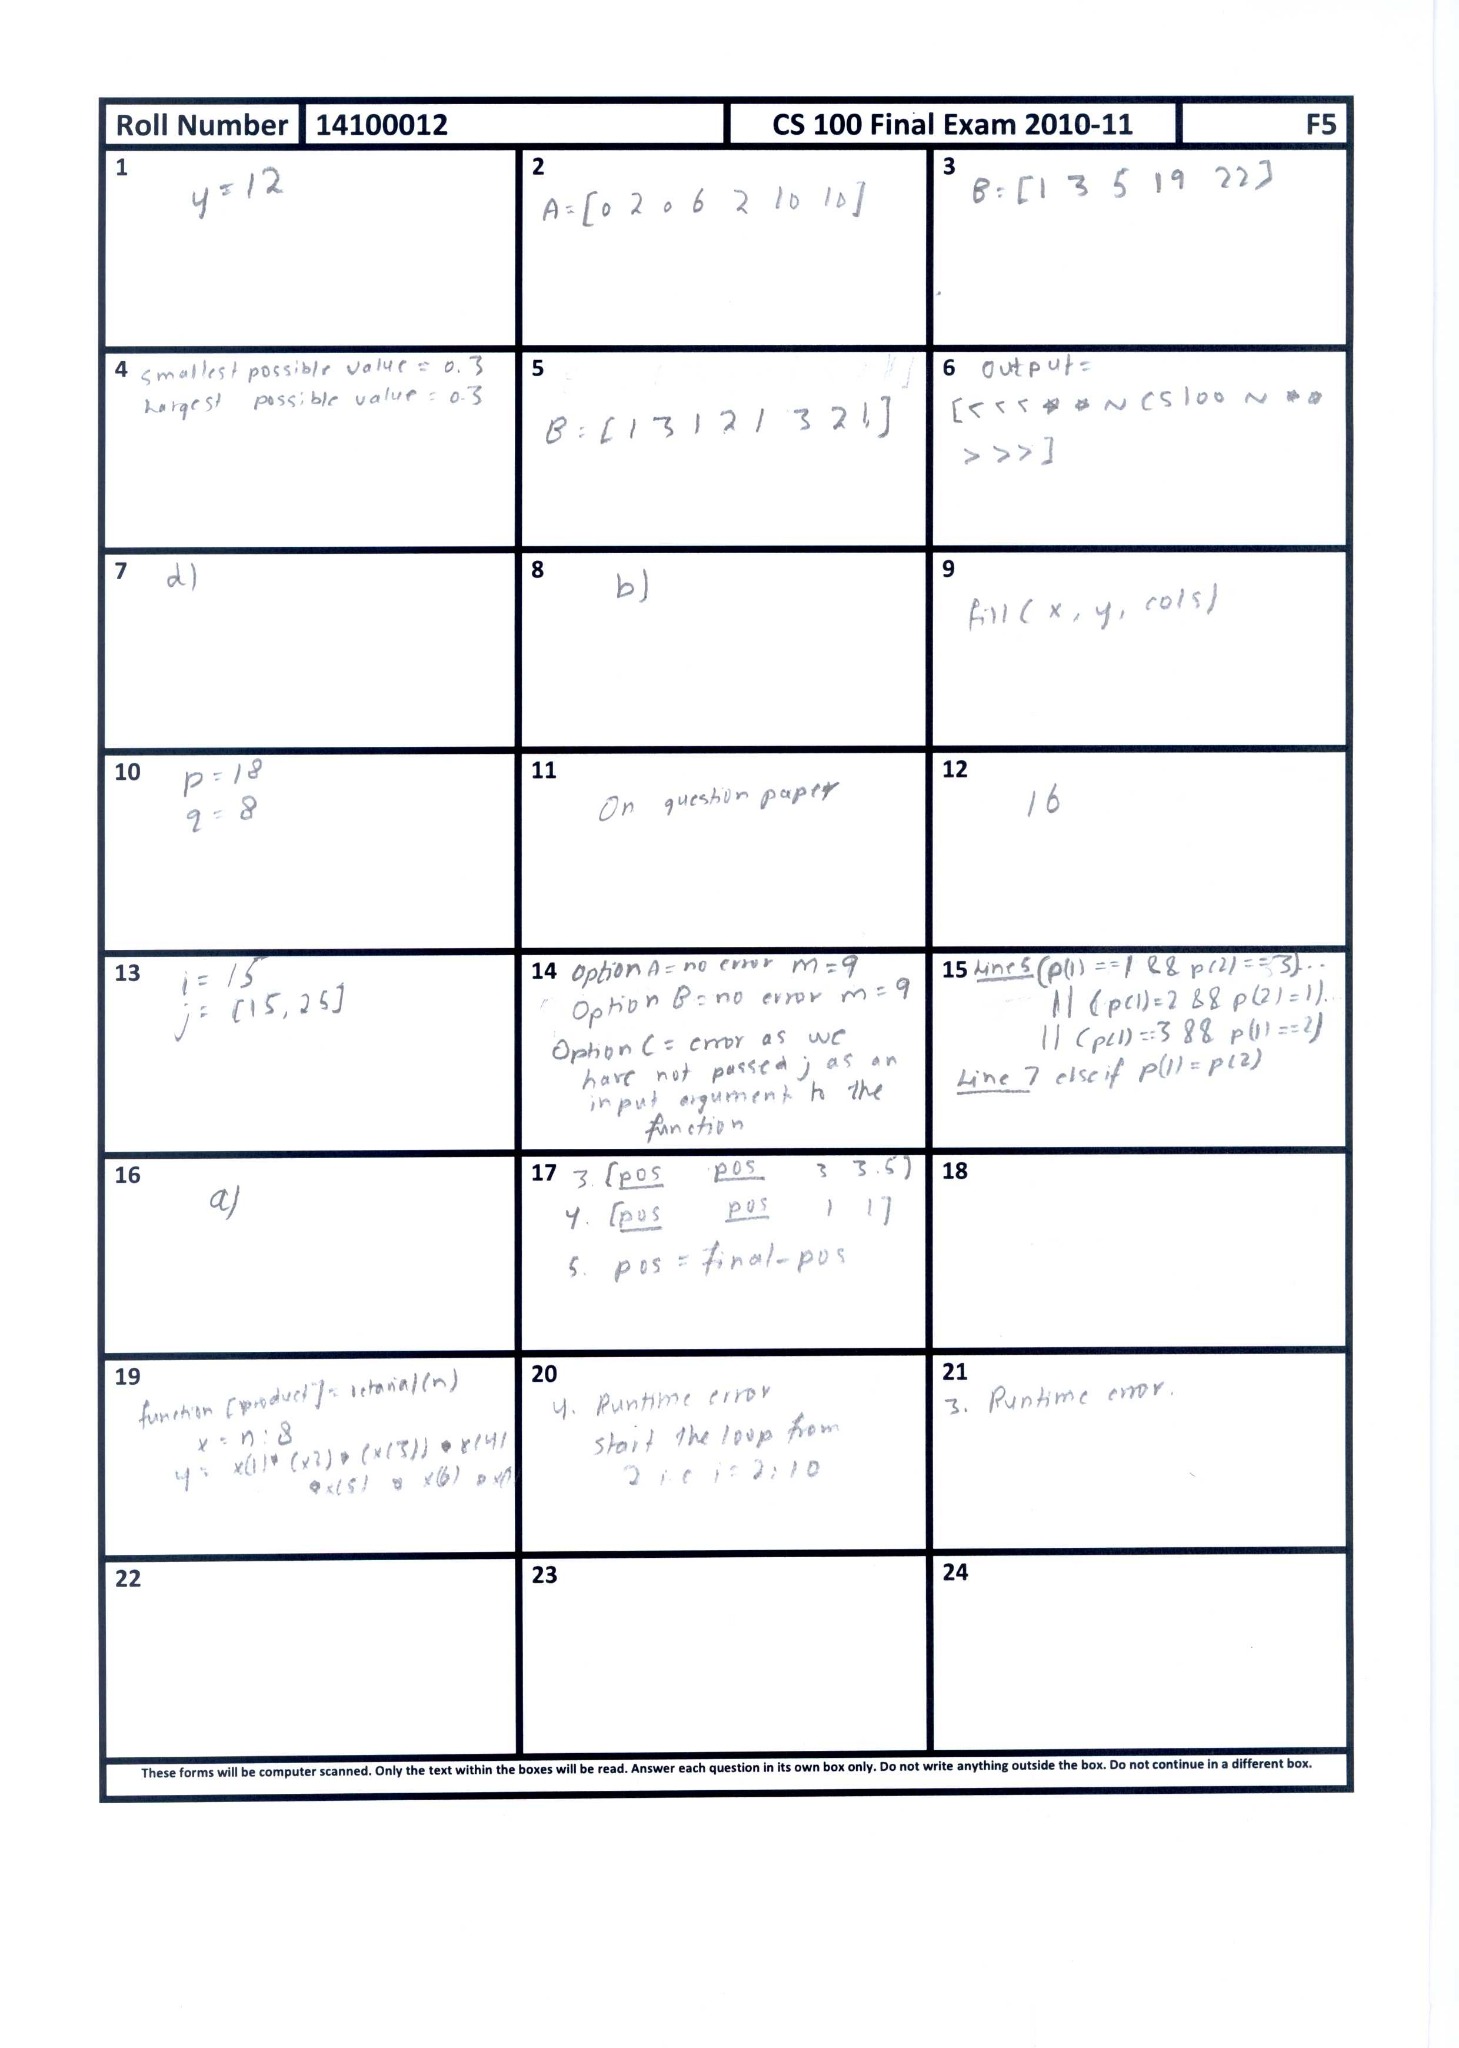 Roll Number 14100012 CS 100 Final Exam 2010-11 F5
1
y = 12
2
A = [0 2 0 6 2 10 10]
3
B = [1 3 5 19 22]
4 smallest possible value = 0.3
Largest possible value = 0.3
5
B = [1 3 1 2 1 3 2 1]
6 output =
[<<< * * ~ CS100 ~ * *
>>>]
7 d)
8 b)
9
fill(x, y, cols)
10 p = 18
q = 8
11
On question paper
12
16
13 i = 15
j = [15, 25]
14 Option A = no error m = 9
Option B = no error m = 9
Option C = error as we
have not passed j as an
input argument to the
function
15 Line 5 (p(1) == 1 && p(2) == 3)...
|| (p(1)=2 && p(2)=1)...
|| (p(1)==3 && p(1)==2)
Line 7 elseif p(1) = p(2)
16
a)
17 3. [pos pos 3 3.5]
4. [pos pos 1 1]
5. pos = final-pos
18
19
function [product] = (n)
x = n:8
y = x(1) * (x2) * (x(3)) * x(4)
* x(5) * x(6) *
20
4. Runtime error
start the loop from
2 i.e i = 2:10
21
3. Runtime error.
22
23
24
These forms will be computer scanned. Only the text within the boxes will be read. Answer each question in its own box only. Do not write anything outside the box. Do not continue in a different box.